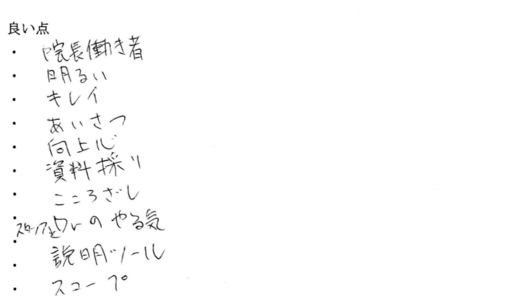 良い点
・ 院長働き者
・ 明るい
・ キレイ
・ あいさつ
・ 向上心
・ 資料採り
・ こころざし
・ スタッフ のやる気
・ 説明ツール
・ スコープ